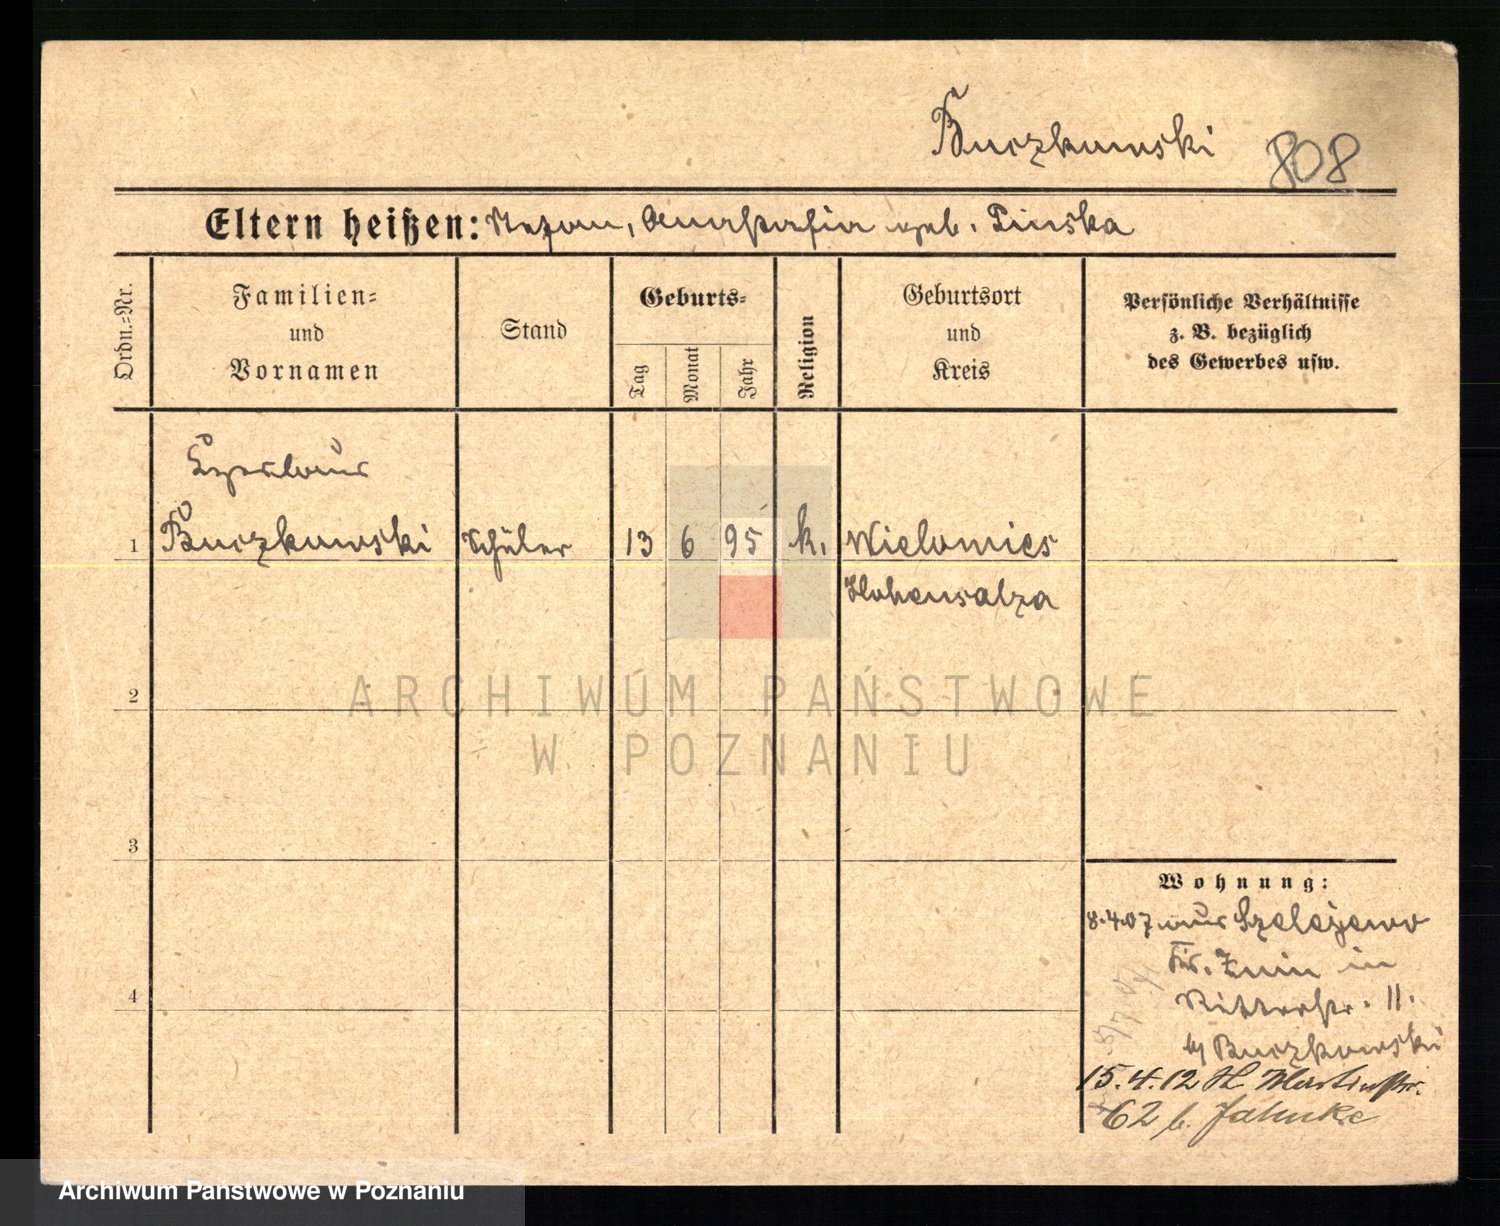 Buczkowski 808
Eltern heißen: Stefan, Anastasia geb. Pinska
Ordn.-Nr.
Familien- und Vornamen
Stand
Geburts-
Tag
Monat
Jahr
Religion
Geburtsort und Kreis
Persönliche Verhältnisse z. B. bezüglich des Gewerbes usw.
Czeslaus
1 Buczkowski Schüler 13 6 95 k. Wielowies
Hohensalza
2
ARCHIWUM PAŃSTWOWE
W POZNANIU
3
Wohnung:
8.4.07 aus Szelejewo
Kr. Znin in
4
Ritterstr. 11.
bei Buczkowski
15.4.12 St. Martinstr.
62 b. Jahnke
Archiwum Państwowe w Poznaniu